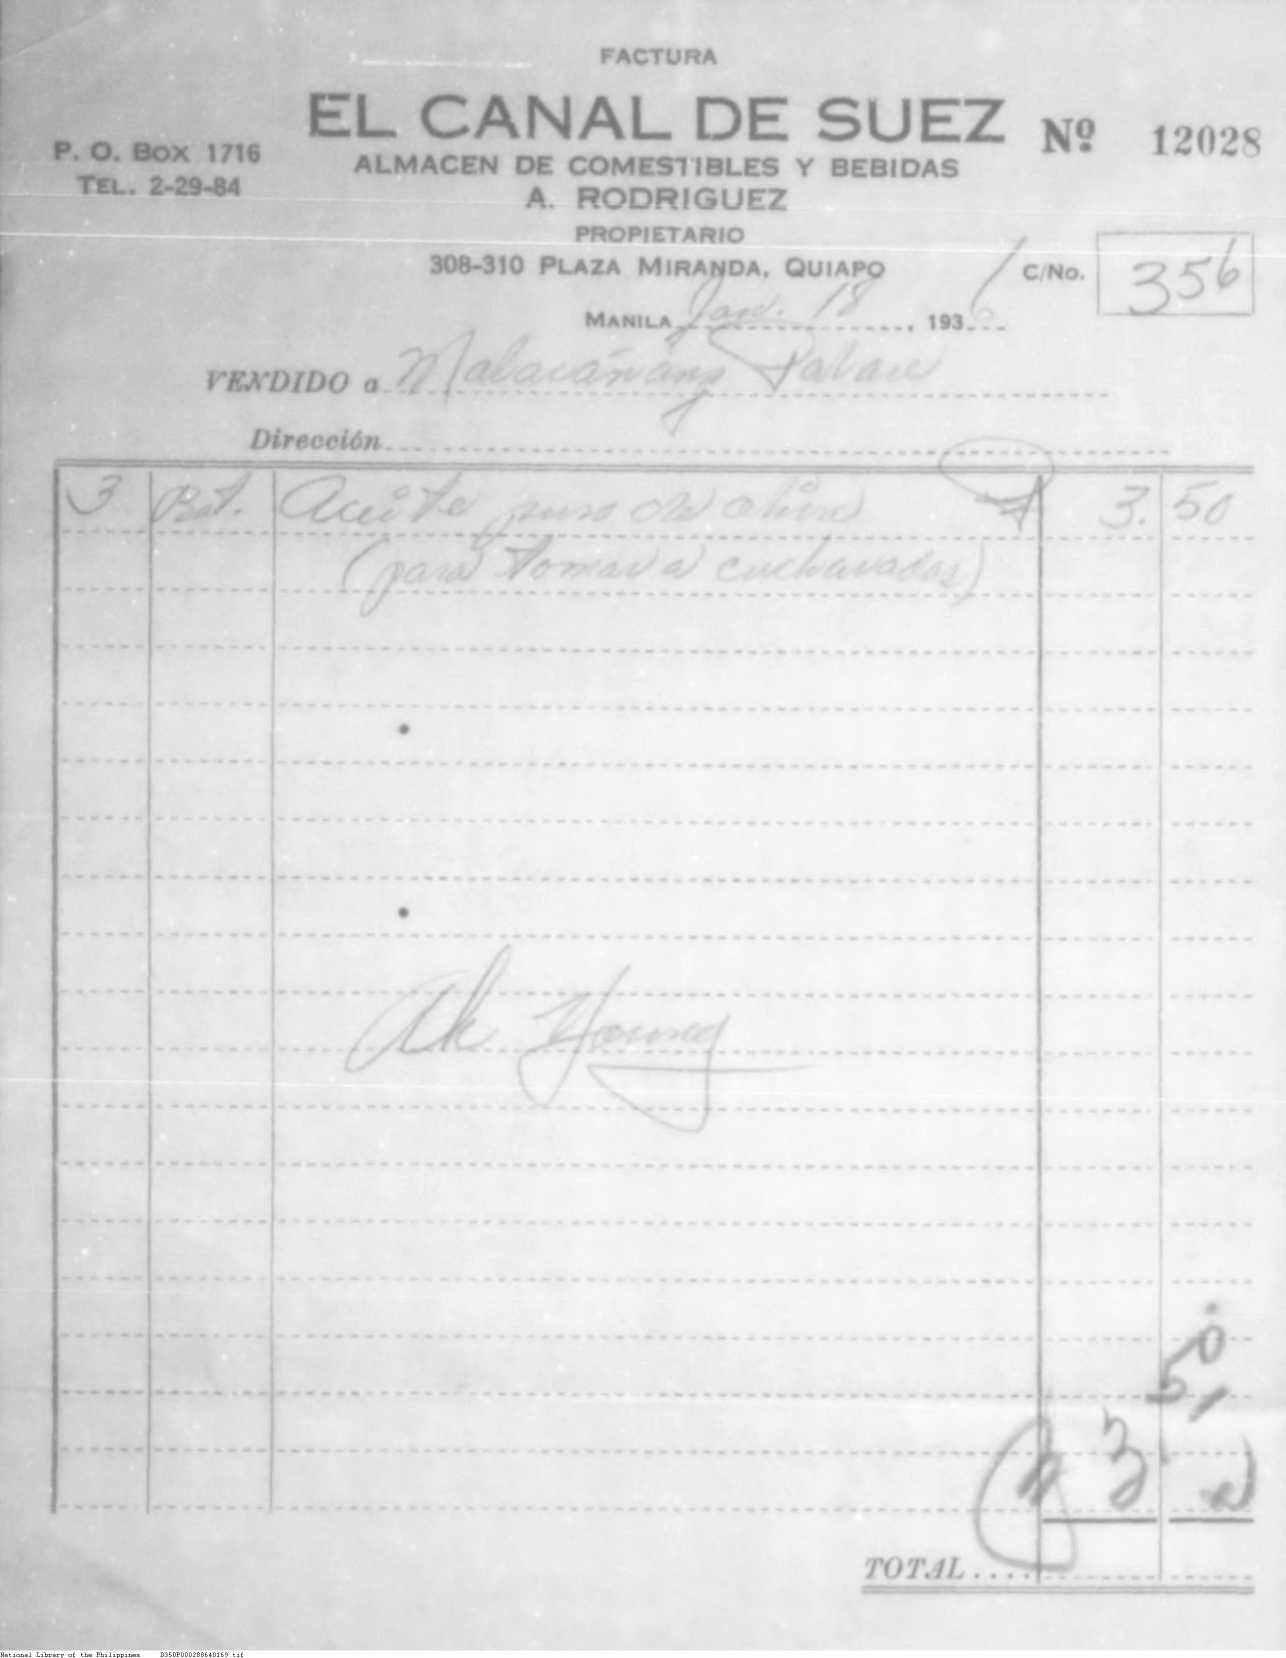 FACTURA
EL CANAL DE SUEZ
Nº 12028
P. O. BOX 1716
TEL. 2-29-84
ALMACEN DE COMESTIBLES Y BEBIDAS
A. RODRIGUEZ
PROPIETARIO
308-310 PLAZA MIRANDA, QUIAPO
C/No. 356
MANILA Jan. 18, 1936
VENDIDO a Malacañang Palace
Dirección
3 Bot. Aceite puro de oliva ₱ 3.50
(para tomar a cucharadas)
Ah Young
50
₱ 3
TOTAL
National Library of the Philippines D350P000288640169.tif